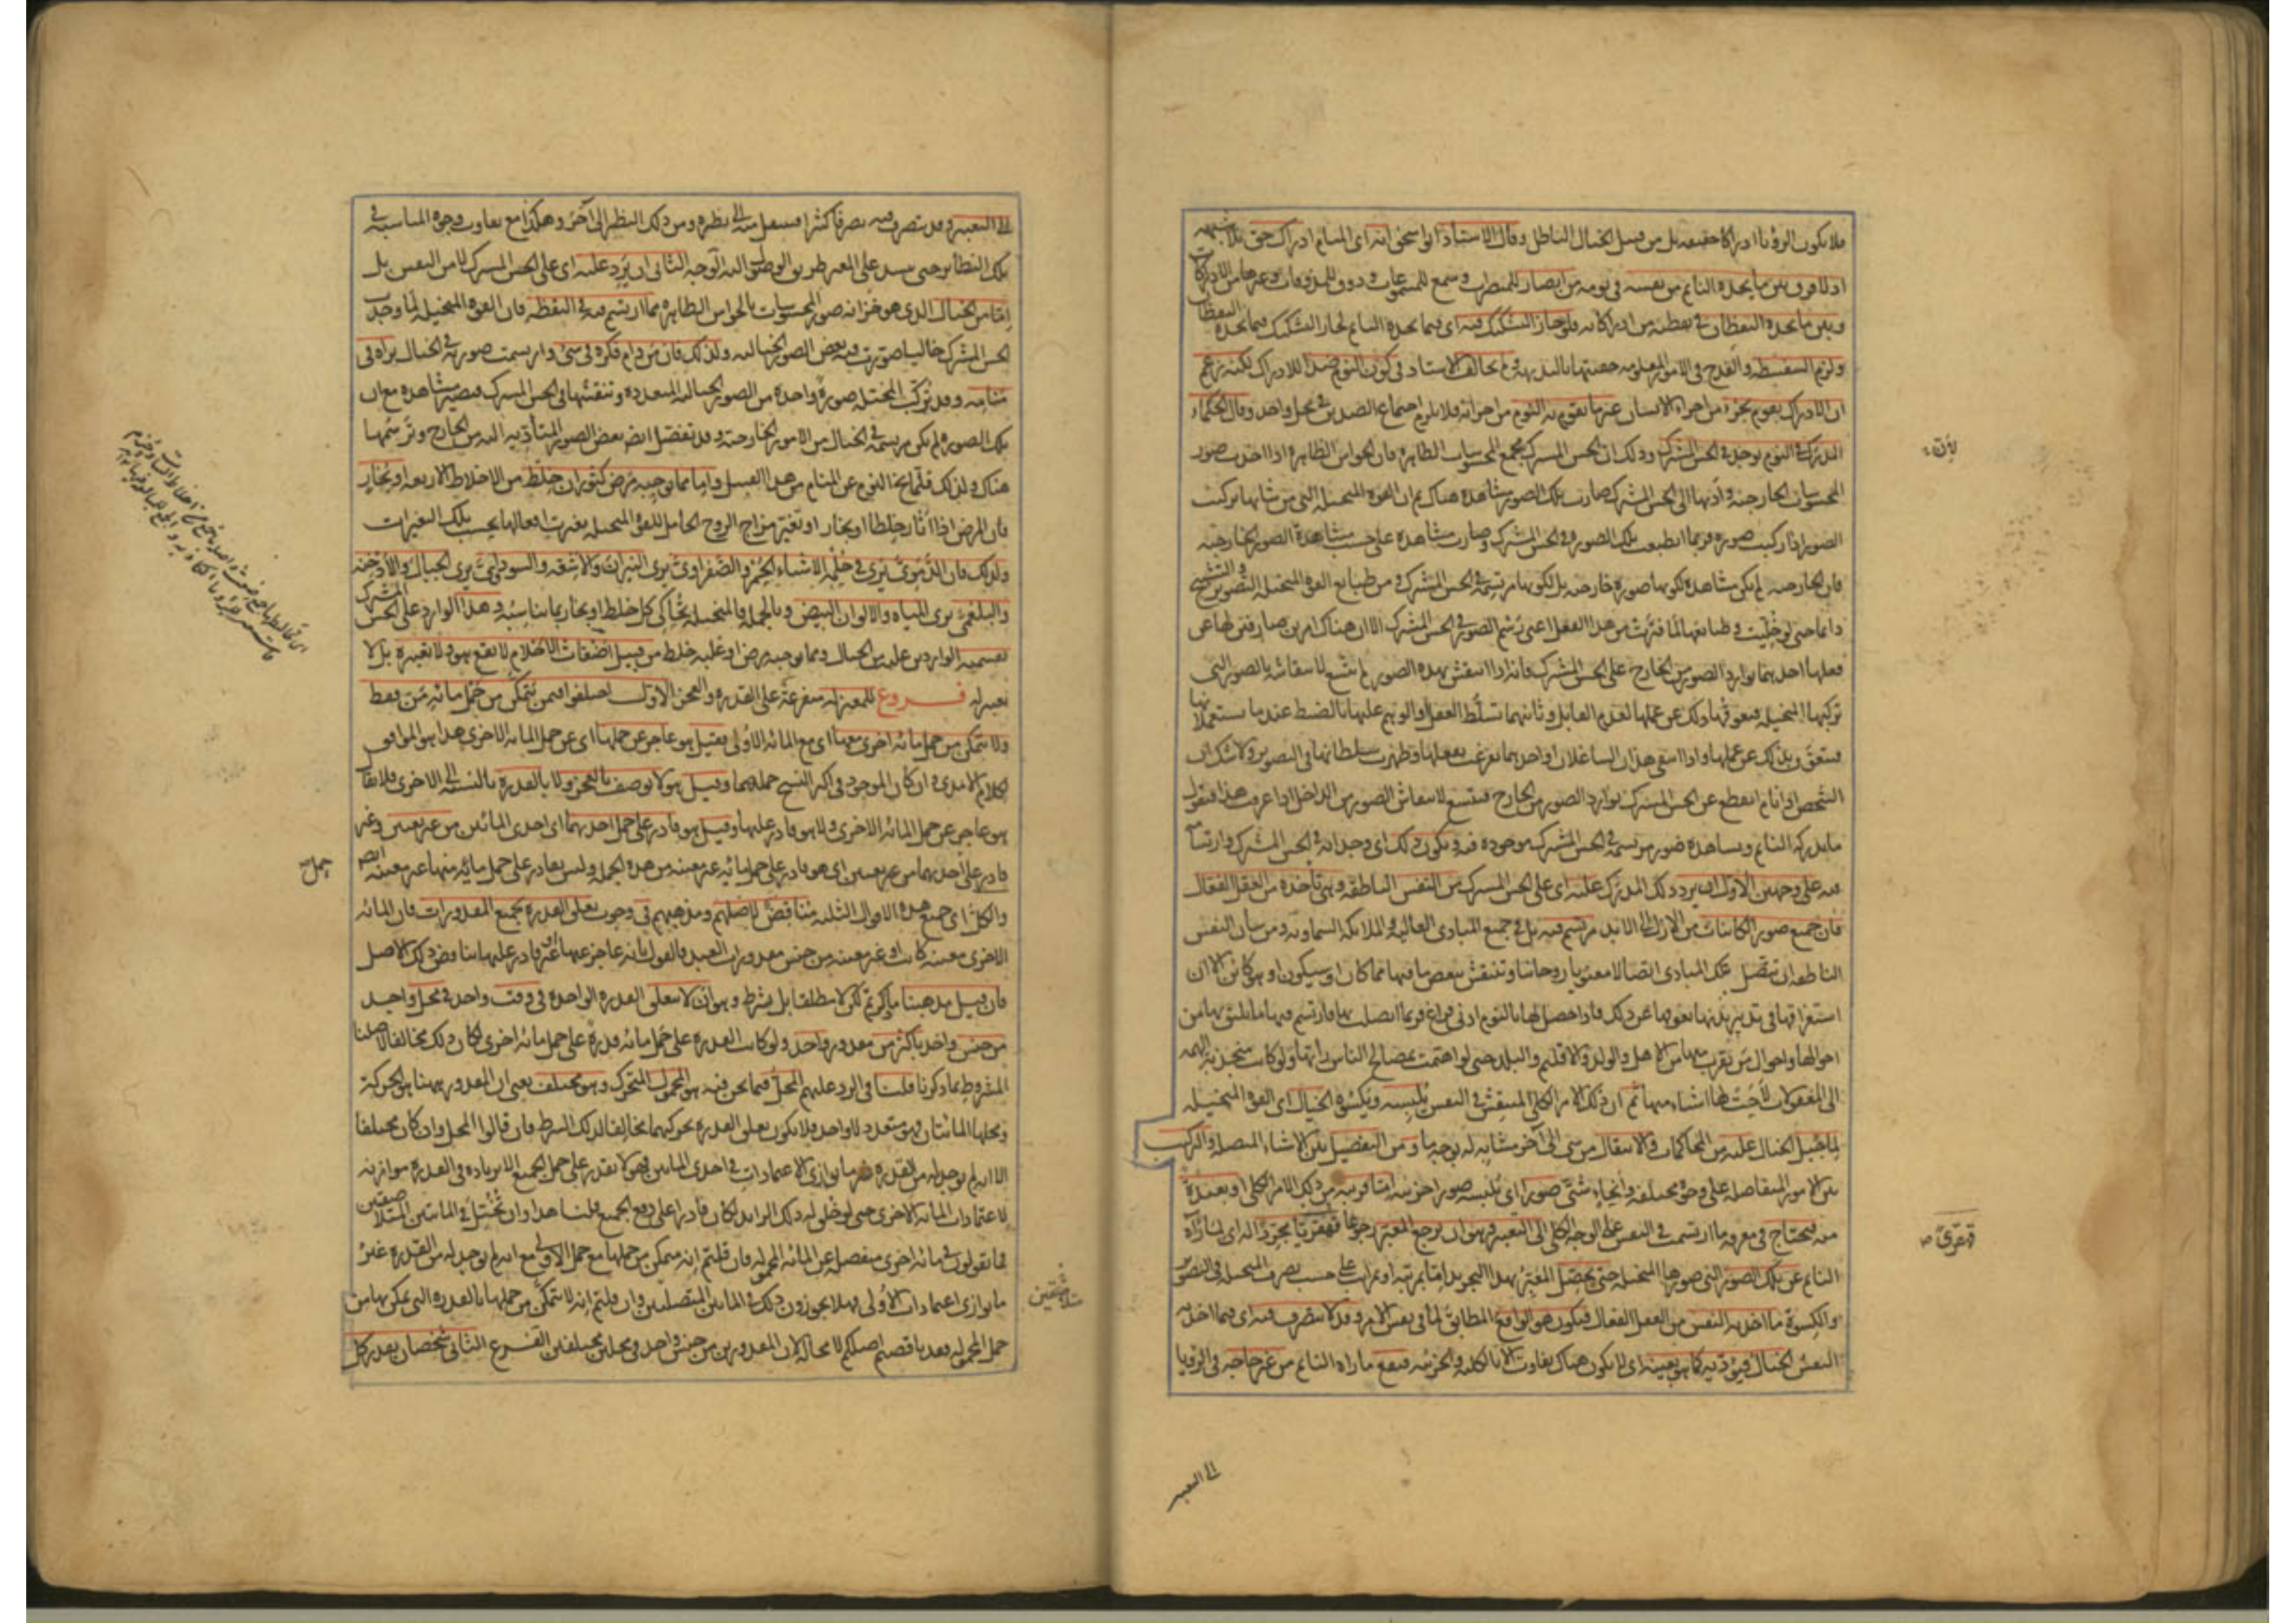 فلا تكون الرؤيا ادراكا حقيقة بل من قبيل الخيال الباطل وقال الاستاذ ابو اسحق انه اى المنام ادراك حق بلا شبهه
اذ لا فرق بين ما يجده النائم من نفسه فى نومه من ابصار للمبصرات وسمع للمسموعات وذوق للمذوقات وغيرها من الادراكات
وبين ما يجده اليقظان فى يقظته من ادراكاته فلو جاز التشكيك فيه اى فيما يجده النائم لجاز التشكيك فيما يجده اليقظان
ولزم السفسطة والقدح فى الامور المعلومه حقيتها بالبديهة ولم يخالف الاستاد فى كون النوم ضدا للادراك لكنه زعم
ان الادراك يقوم بجزء من اجزاء الانسان غير ما يقوم به النوم من اجزائه فلا يلزم اجتماع الضدين فى محل واحد وقال الحكماء
المدرك فى النوم يوجد فى الحس المشترك وذلك ان الحس المشترك مجمع المحسوسات الظاهرة فان الحواس الظاهرة اذا اخذت صور
المحسوسات الخارجية وادتها الى الحس المشترك صارت تلك الصور مشاهدة هناك ثم ان القوة المتخيلة التى من شانها تركيب
الصور اذا ركبت صورة فربما انطبعت تلك الصورة فى الحس المشترك وصارت مشاهدة على حسب مشاهدة الصور الخارجية
فان الخارجية لم تكن مشاهدة لكونها صورة خارجية بل لكونها مرتسمة فى الحس المشترك ومن طباع القوة المتخيلة التصوير والتشبيح
دائما حتى لو خليت وطباعها لما فترت من هذا الفعل اعنى رسم الصور فى الحس المشترك الا ان هناك امرين صارفين لها عن
فعلها احدهما توارد الصور من الخارج على الحس المشترك فانه اذا انتقش بهذه الصور لم يتسع لانتقاشه بالصور التى
تركبها المتخيلة فيعوقها ذلك عن عملها لعدم القابل وثانيهما تسلط العقل او الوهم عليها بالضبط عندما يستعملانها
فتتعوق بذلك عن عملها واذا انتفى هذان الشاغلان او احدهما تفرغت لفعلها وظهرت سلطانها فى التصوير ولا شك ان
الشخص اذا نام انقطع عن الحس المشترك توارد الصور من الخارج فيتسع لانتقاش الصور من الداخل اذا عرفت هذا فنقول
ما يدركه النائم ويشاهده صور مرتسمة فى الحس المشترك موجودة فيه ويكون ذلك اى وجدانه فى الحس المشترك وارتسامه
فيه على وجهين الاول ان يرد ذلك المدرك عليه اى على الحس المشترك من النفس الناطقة وهى تأخذه من العقل الفعال
فان جميع صور الكائنات من الازل الى الابد مرتسم فيه بل فى جميع المبادى العالية والملائكة السماوية ومن شان النفس
الناطقة ان تتصل بتلك المبادى اتصالا معنويا روحانيا وتنتقش ببعض ما فيها مما كان او سيكون او هو كائن الا ان
استغراقها فى تدبير بدنها يعوقها عن ذلك فاذا حصل لها بالنوم ادنى فراغ فربما اتصلت بها فارتسم فيها ما يليق بها من
احوالها واحوال من يقرب منها من الاهل والولد والاقليم والبلد حتى لو اهتمت بمصالح الناس رأتها ولو كانت منجذبة الهمة
الى المعقولات لاحت لها اشياء منها ثم ان ذلك الامر الكلى المنتقش فى النفس يلبسه ويكسوه الخيال اى القوة المتخيلة
لما جبل الخيال عليه من المحاكات والانتقال من شى الى آخر مشابه له بوجه ما ومن التفصيل بين الاشياء المتصلة والتركيب
بين الامور المتفاصلة على وجوه مختلفة وانحاء شتى صورا اى يلبسه صورا جزئية اما قريبة من ذلك الامر الكلى او بعيدة
منه فيحتاج فى معرفة ما ارتسمت فى النفس على الوجه الكلى الى التعبير وهو ان يرجع المعبر رجوعا قهقريا مجردا له اى لما رآه
النائم عن تلك الصور التى صورها المتخيلة حتى يحصل المعبر بهذا التجريد اما بمرتبة او بمراتب على حسب تصرف المتخيلة فى التصوير
والكسوة ما اخذته النفس من العقل الفعال فيكون هو الواقع المطابق لما فى نفس الامر وقد لا يتصرف فيه اى فيما اخذته
النفس الخيال فيؤديه كما هو بعينه اى لا يكون هناك تفاوت الا بالكلية والجزئية فيقع ما راه النائم من غير حاجة فى الرؤيا
لأن
قهقرى صح
الى التعبير
الى التعبير وقد تصرف فيه تصرفا كثيرا فينتقل منه الى نظيره ومن ذلك النظير الى آخر وهكذا مع تفاوت وجوه المناسبة فى
تلك النظائر حتى ينسد على المعبر طريق الوصول اليه الوجه الثانى ان يرد عليه اى على الحس المشترك لا من النفس بل
اما من الخيال الذى هو خزانه صور المحسوسات بالحواس الظاهره مما ارتسم فيه فى اليقظة فان القوة المتخيلة لما وجدت
الحس المشترك خاليا صورت فيه بعض الصور الخياليه ولذلك فان من دام فكره فى شئ وارتسمت صورته فى الخيال يراه فى
منامه وقد تركب المتخيلة صورة واحدة من الصور الخيالية المتعددة وتنقشها فى الحس المشترك فتصير مشاهدة مع ان
تلك الصورة لم تكن مرتسمة فى الخيال من الامور الخارجة وقد تفصل ايضا بعض الصور المتأدية اليه من الخارج وترسمها
هناك ولذلك قلما يخلو النوم عن المنام من هذا القبيل واما مما يوجبه مرض كثوران خلط من الاخلاط الاربعة او بخار
فان المرض اذا اثار خلطا او بخارا او تغير مزاج الروح الحامل للقوة المتخيلة تغيرت افعالها بحسب تلك التغيرات
ولذلك فان الدموى يرى فى حلمه الاشياء الحمر والصفراوى يرى النيران والاشعة والسوداوى يرى الجبال والادخنة
والبلغمى يرى المياه والالوان البيض وبالجملة فالمتخيلة تحاكى كل خلط او بخار بما يناسبه وهذا الوارد على الحس المشترك
بقسميه الواردين عليه من الخيال ومما يوجبه مرض او غلبة خلط من قبيل اضغاث الاحلام لا يقع هو ولا تعبيره بل لا
تعبير له فروع للمعتزلة متفرعة على القدرة والعجز الاول اختلفوا فيمن يتمكن من حمل مائة من فقط
ولا يتمكن من حمل مائة اخرى معها اى مع المائة الاولى فقيل هو عاجز عن حملها اى عن حمل المائة الاخرى هذا هو الموافق
لكلام الآمدى وان كان الموجود فى اكثر النسخ حملهما وقيل هو لا يوصف بالعجز ولا بالقدرة بالنسبة الى الاخرى فلا يقال
هو عاجز عن حمل المائة الاخرى ولا هو قادر عليها وقيل هو قادر على حمل احديهما اى احدى المائتين من غير تعيين وغير
قادر على احديهما من غير تعيين اى هو قادر على حمل مائة غير معينة من هذه الجملة وليس بقادر على حمل مائة منها غير معينة ايضا
والكل اى جميع هذه الاقوال الثلثة مناقض لاصلهم ومذهبهم فى وجوب تعلق القدرة بجميع المقدورات فان المائة
الاخرى معينة كانت او غير معينة من جنس مقدورات العبد فالقول بانه عاجز عنها او غير قادر عليها يناقض ذلك الاصل
فان قيل مذهبنا ما ذكرتم لكن لا مطلقا بل بشرط وهو ان لا تتعلق القدرة الواحدة فى وقت واحد فى محل واحد
من جنس واحد باكثر من مقدور واحد ولو كانت القدرة على حمل مائة قدرة على حمل مائة اخرى لكان ذلك مخالفا لاصلنا
المشروط بما ذكرنا قلنا فى الرد عليهم المحل فيما نحن فيه هو المحمول المتحرك وهو مختلف يعنى ان المقدور ههنا هو الحركة
ومحلها المائتان فهو متعدد لا واحد فلا يكون تعلق القدرة بتحريكهما مخالفا لذلك الشرط فان قالوا المحل وان كان مختلفا
الا انه لم يوجد له من القدرة غير ما يوازى الاعتمادات فى احدى المائتين فهو لا يقدر على حمل الجميع الا بزيادة فى القدرة موازية
لاعتمادات المائة الاخرى حتى لو خلق له ذلك الزايد لكان قادرا على رفع الجميع قلنا هذا وان تخيل فى المائتين المتلاصقتين
فما تقولون فى مائة اخرى منفصلة عن المائة المحمولة فان قلتم انه متمكن من حملها مع حمل الاولى مع انه لم يوجد له من القدرة غير
ما يوازى اعتمادات الاولى فهلا تجوزون ذلك فى المائتين المتصلتين وان قلتم انه لا يتمكن من حملها بالقدرة التى تمكن بها من
حمل المحمولة فقد ناقضتم اصلكم لا محالة لان المقدورين من جنس واحد وفى محلين مختلفين الفرع الثانى شخصان يقدر كل
حمل صح
متلاصقتين